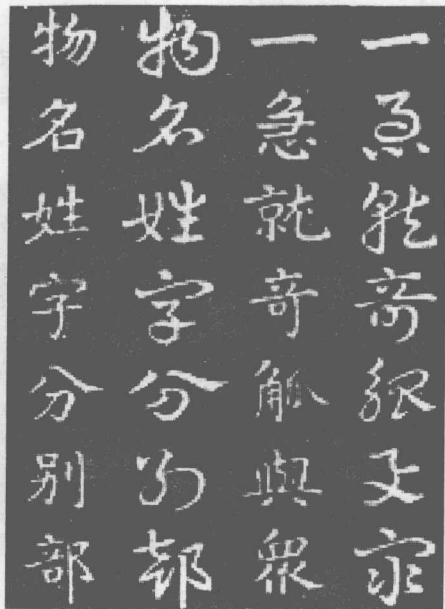 一急就奇觚與衆
一急就奇觚與衆
物名姓字分別部
物名姓字分別部